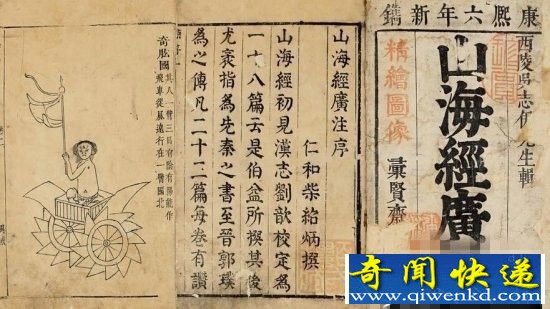 康熙六年新鐫
西陵吳志伊先生輯
山海經廣
精繪圖像
彙賢齋
山海經廣注序
仁和柴紹炳撰
山海經初見漢志劉歆校定為
一十八篇云是伯益所撰其後
尤袤指為先秦之書至晉郭璞
為之傳凡二十二篇每卷有讚
奇肱國
其人一臂三目有陰有陽能作
飛車從風遠行在一臂國北
奇闻快递
www.qiwenkd.com